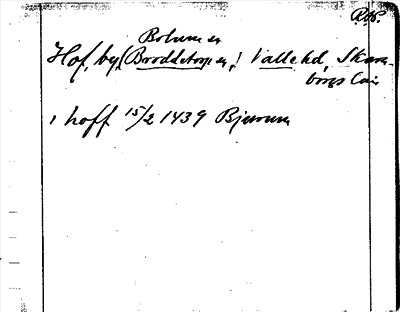 Rob.
Bolum sn
Hof, by, (Broddetorp sn,) Valle hd, Skara-
borgs län
i hoff 15/2 1439 Bjurum